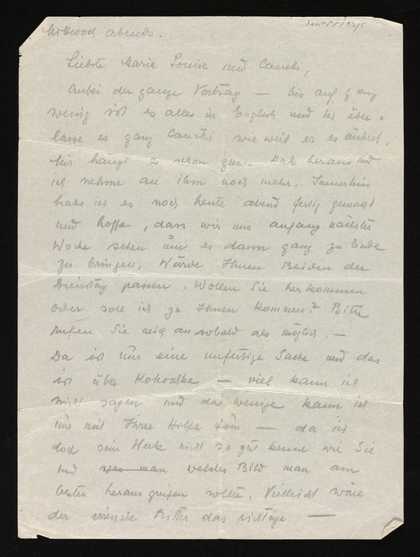 Mittwoch abends.
Liebste Marie Louise und Canetti,
Anbei der ganze Vortrag — bis auf ganz
wenig ist es alles in English und ich über-
lasse es ganz Canetti wie weit er es ändert.
Mir hängt es schon zum Hals heraus und
ich nehme an ihm noch mehr. Immerhin
habe ich es noch heute abend fertig gemacht
und hoffe, dass wir uns anfang nächster
Woche sehen um es dann ganz zu Ende
zu bringen. Würde Ihnen Beiden der
Dienstag passen. Wollen Sie herkommen
oder soll ich zu Ihnen kommen? Bitte
rufen Sie mich an sobald als möglich. —
Da ist nur eine unfertige Sache und das
ist über Kokoschka — viel kann ich
nicht sagen und das wenige kann ich
nur mit Ihrer Hilfe tun — da ich
doch sein Werk nicht so gut kenne wie Sie
und man welches Bild man am
besten herausgreifen sollte. Vielleicht wäre
der Bitte das richtige —